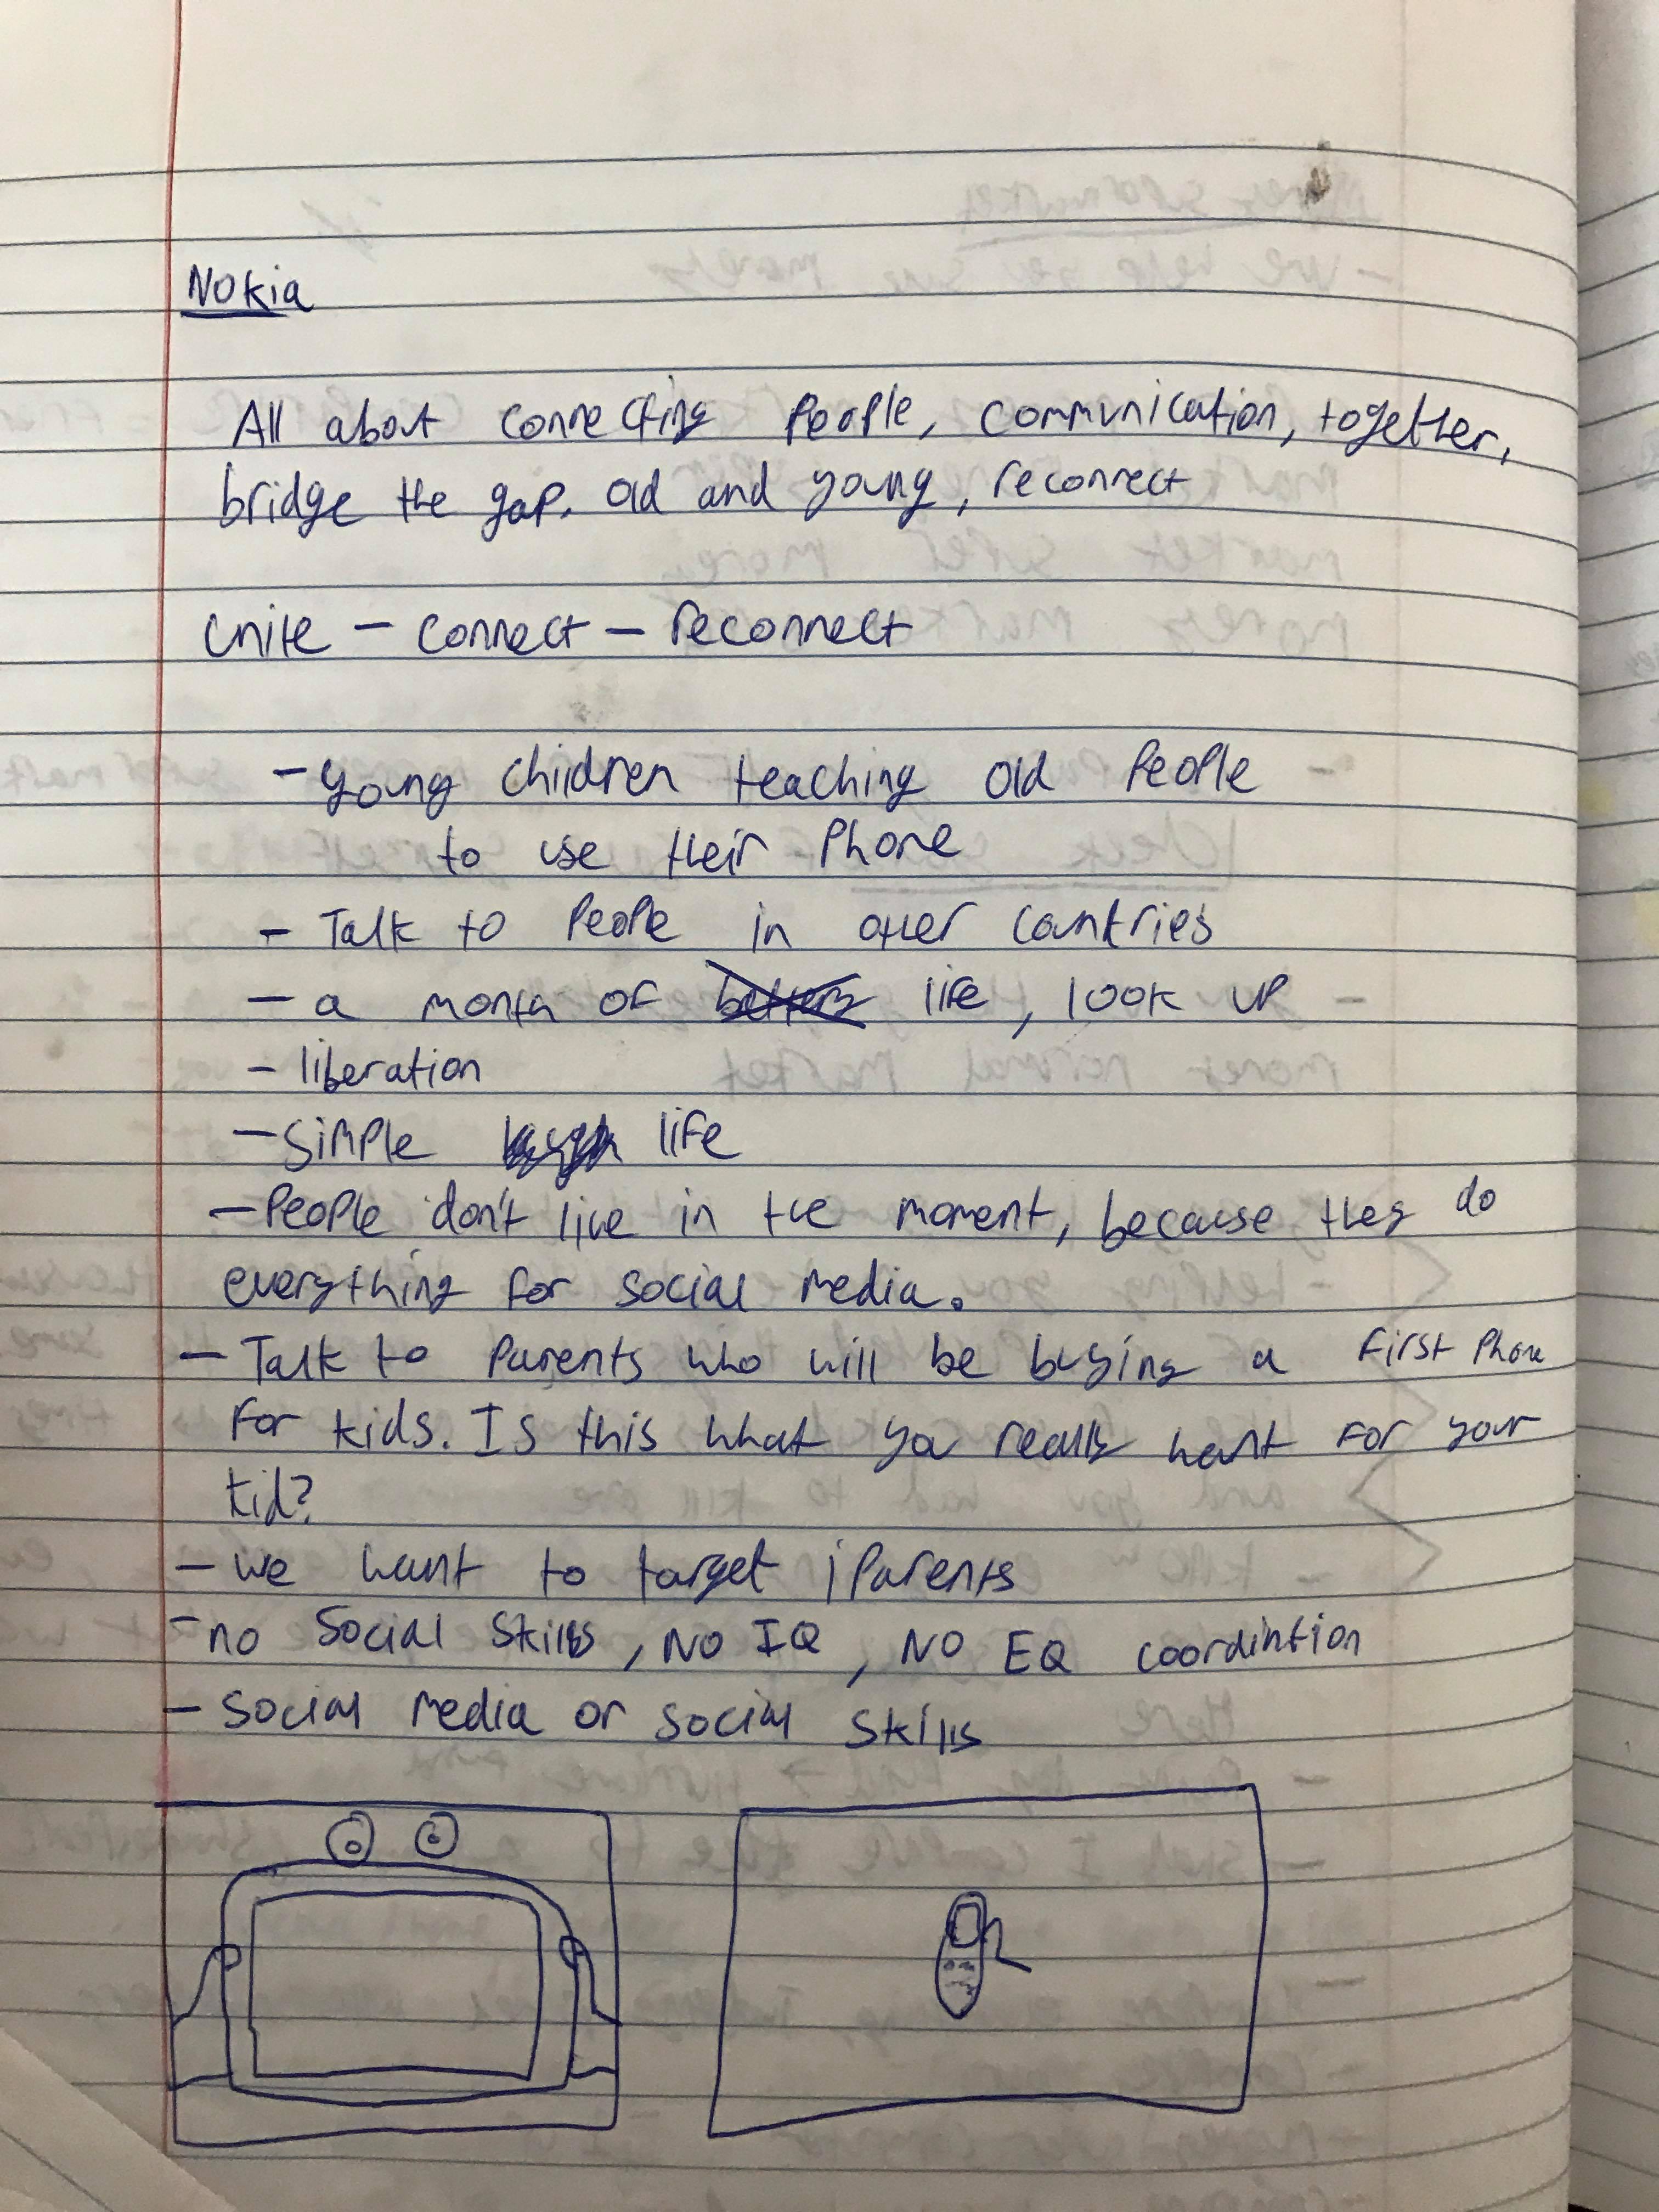 Nokia
All about connecting people, communication, together,
bridge the gap. old and young, reconnect
Unite - connect - reconnect
- young children teaching old people
to use their phone
- Talk to people in other countries
- a month of life, look up
- liberation
- simple life
- People don't live in the moment, because they do
everything for social media.
- Talk to parents who will be buying a first phone
for kids. Is this what you really want for your
kid?
- we want to target iparents
- no social skills, NO IQ, NO EQ coordintion
- social media or social skills